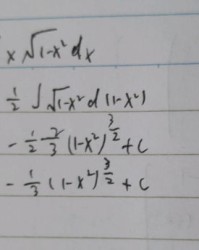 x √1-x² dx
½ ∫ √1-x² d(1-x²)
- ½ · ⅔ (1-x²)^(3/2) + C
- ⅓ (1-x²)^(3/2) + C